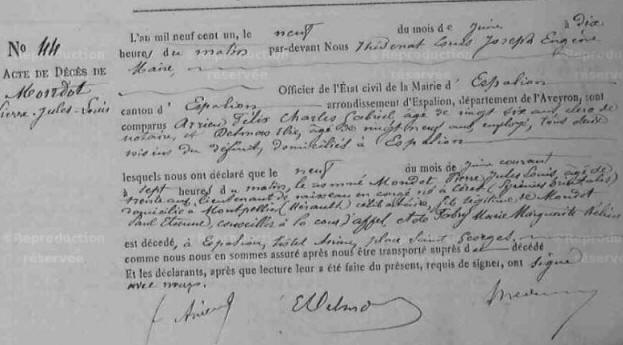 No 44
ACTE DE DÉCÈS DE
Mondot
Pierre-Jules-Louis
L'an mil neuf cent un, le neuf du mois de juin à dix
heures du matin par-devant Nous Thédenat Louis Joseph Eugène
Maire,
Officier de l'État civil de la Mairie d'Espalion
canton d'Espalion arrondissement d'Espalion, département de l'Aveyron, sont
comparus Arrieu Félix Charles Gabriel, âgé de vingt six ans clerc de
notaire, et Delmas Elie, âgé de vingt neuf ans, employé, tous deux
voisins du défunt, domiciliés à Espalion
lesquels nous ont déclaré que le neuf du mois de juin courant
à sept heures du matin, le nommé Mondot Pierre Jules Louis, âgé de
trente ans, lieutenant de vaisseau en congé né à Céret (Pyrénées Orientales)
domicilié à Montpellier (Hérault) célibataire, fils légitime de Mondot
Paul Etienne, conseiller à la cour d'appel et de Marie Marguerite
est décédé, à Espalion, hôtel place Saint Georges,
comme nous nous en sommes assuré après nous être transporté auprès du décédé
Et les déclarants, après que lecture leur a été faite du présent, requis de signer, ont signé
avec nous.
E Delmas
©Reproduction
réservée
©Reproduction
réservée
©Reproduction
réservée
©Reproduction
réservée